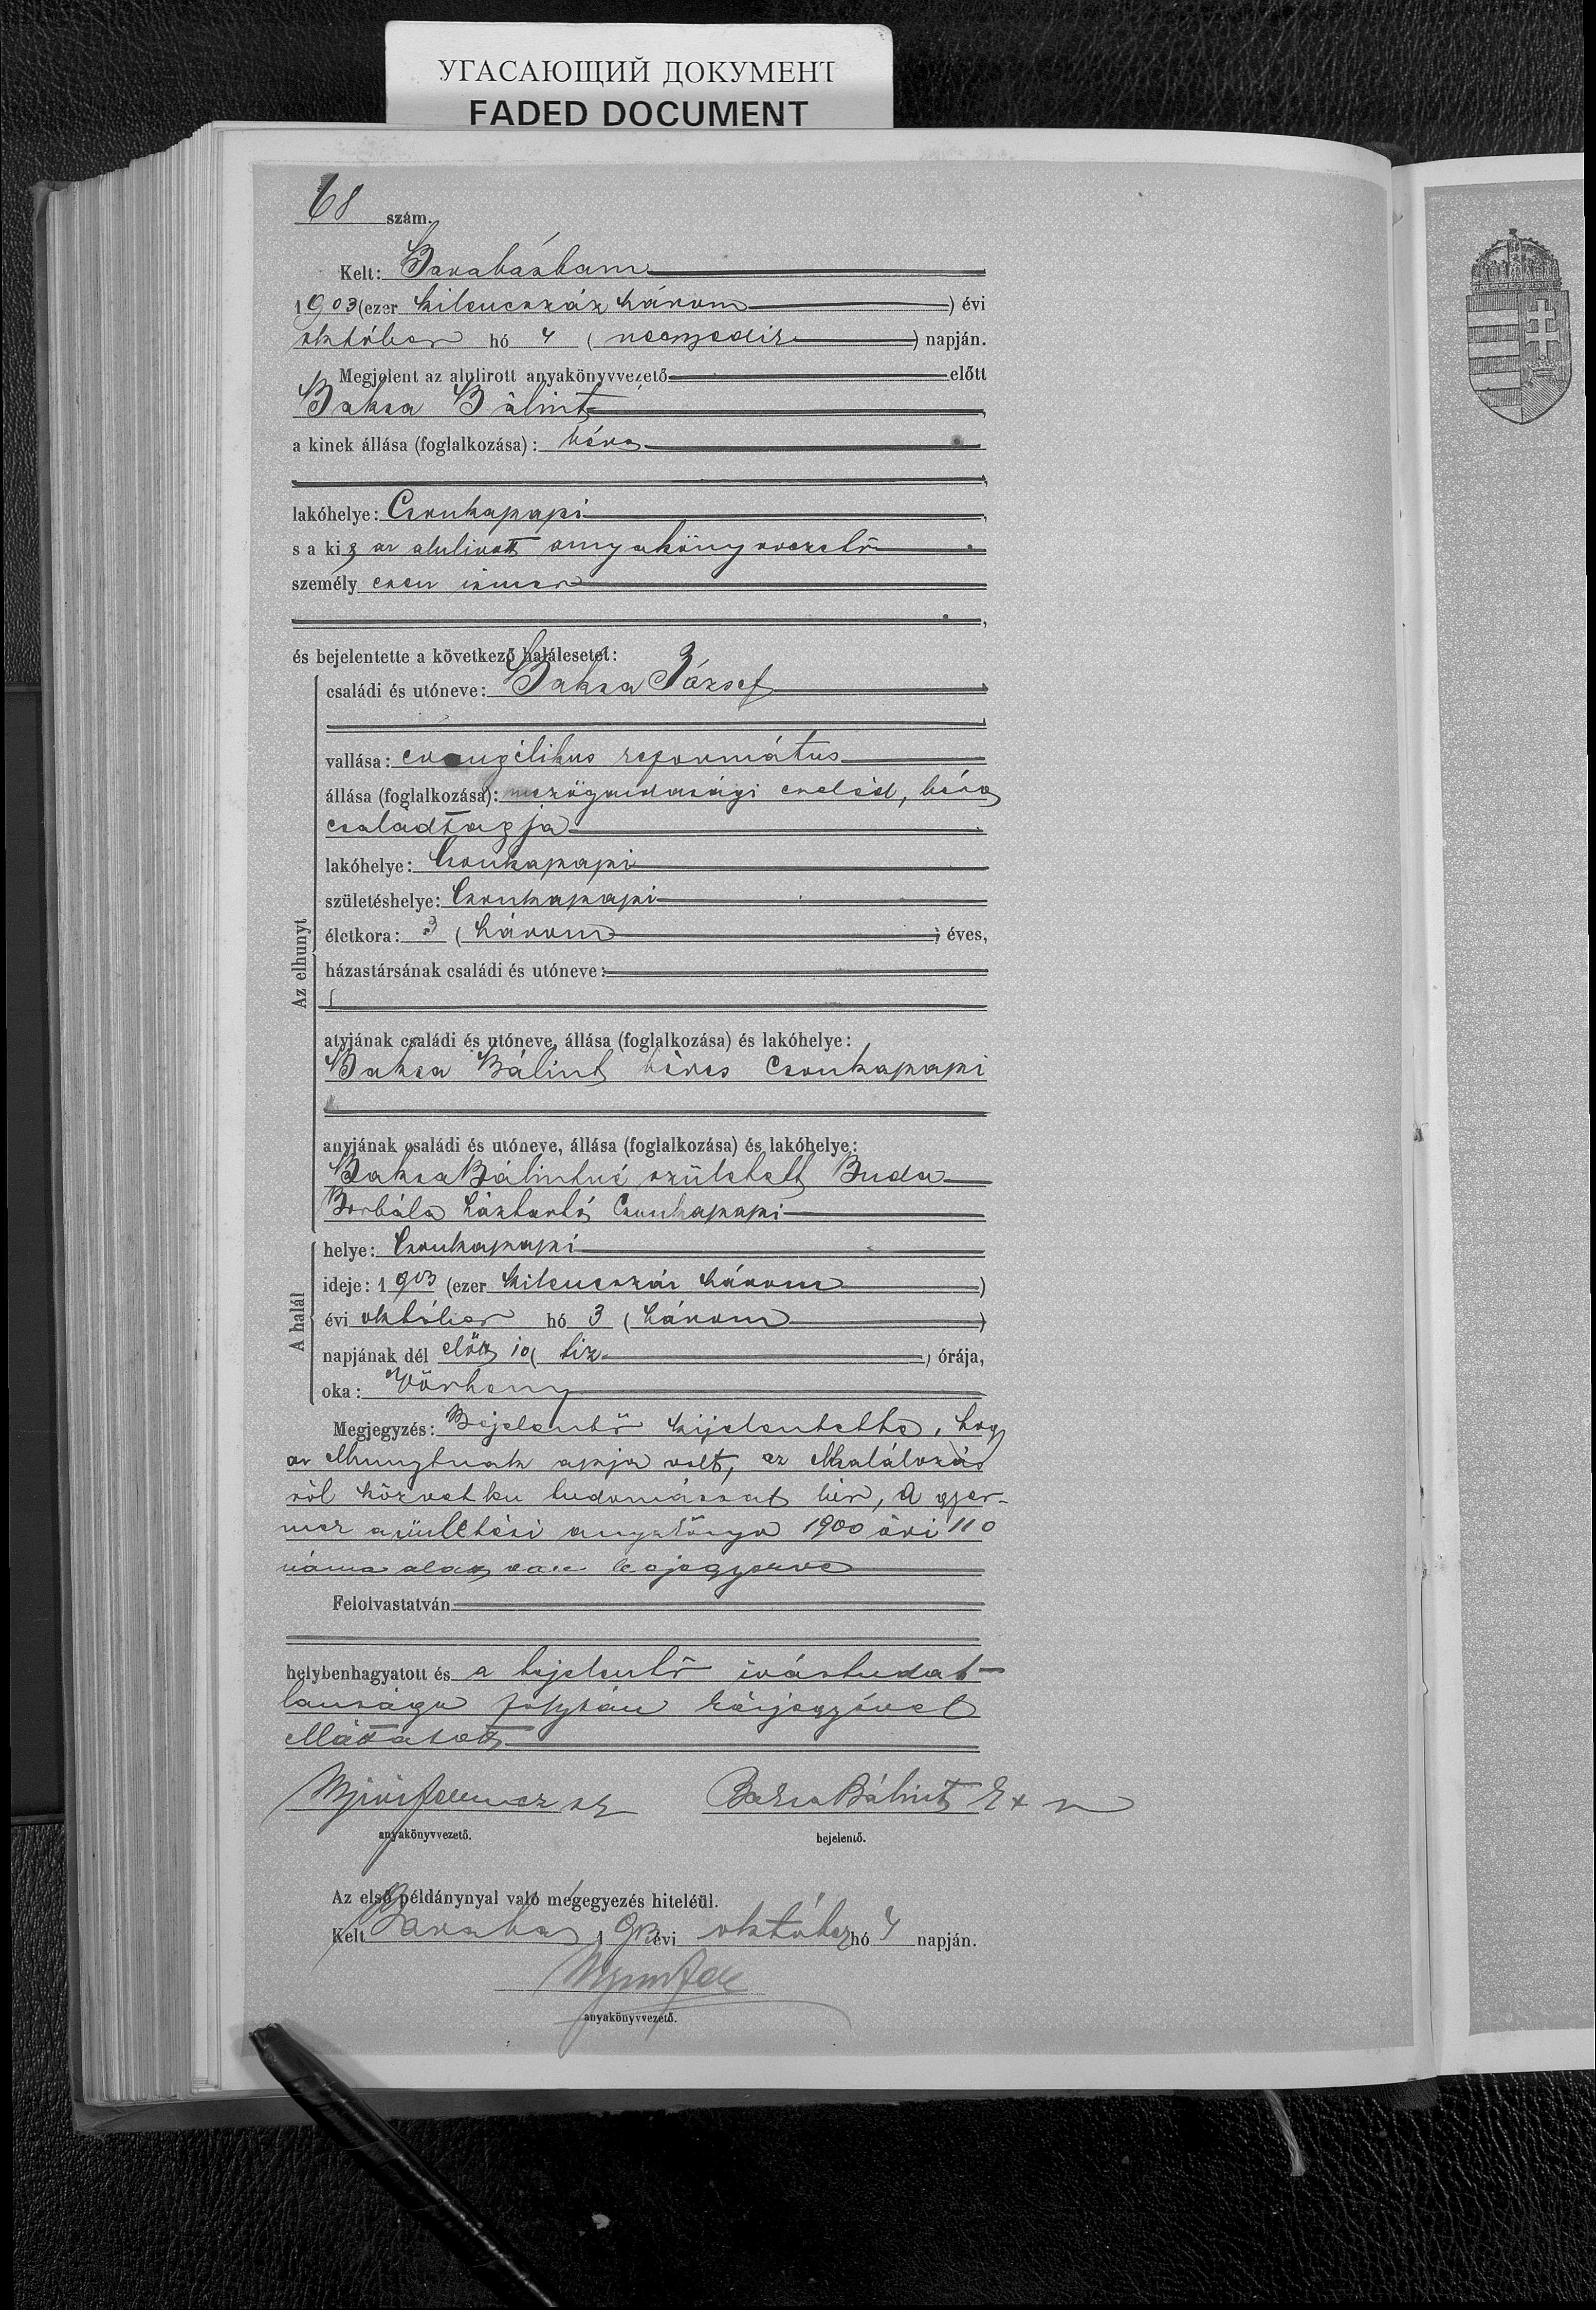 УГАСАЮЩИЙ ДОКУМЕНТ
FADED DOCUMENT
68 szám.
Kelt: Barabásban
1903 (ezer kilenczszáz három) évi
október hó 4 (negyedik) napján.
Megjelent az alulirott anyakönyvvezető előtt
Baksa Bálint,
a kinek állása (foglalkozása): béres
lakóhelye: Csonkapapi,
s a kit az alulirott anyakönyvvezető
személyesen ismer,
és bejelentette a következő halálesetet:
Az elhunyt
családi és utóneve: Baksa József
vallása: evangélikus református
állása (foglalkozása): mezőgazdasági cseléd, béres
családtagja
lakóhelye: Csonkapapi
születéshelye: Csonkapapi
életkora: 3 (három) éves,
házastársának családi és utóneve:
atyjának családi és utóneve, állása (foglalkozása) és lakóhelye:
Baksa Bálint béres Csonkapapi
anyjának családi és utóneve, állása (foglalkozása) és lakóhelye:
Baksa Bálintné született Buda
Borbála háztartás Csonkapapi
A halál
helye: Csonkapapi
ideje: 1903 (ezer kilenczszáz három)
évi október hó 3 (három)
napjának dél előtt 10 (tiz) órája,
oka: Vörheny
Megjegyzés: Bejelentő kijelentette, hogy
az elhunytnak apja volt, az elhalálozás
ról közvetlen tudomással bir, A gyer-
mek születési anyakönyv 1900 évi 110
száma alatt van bejegyezve
Felolvastatván
helybenhagyatott és a bejelentő irástudat-
lansága folytán kézjegyével
elláttatott
anyakönyvvezető.
Baksa Bálint
bejelentő.
Az első példánynyal való megegyezés hiteléül.
Kelt Barabás 1903 évi október hó 4 napján.
anyakönyvvezető.